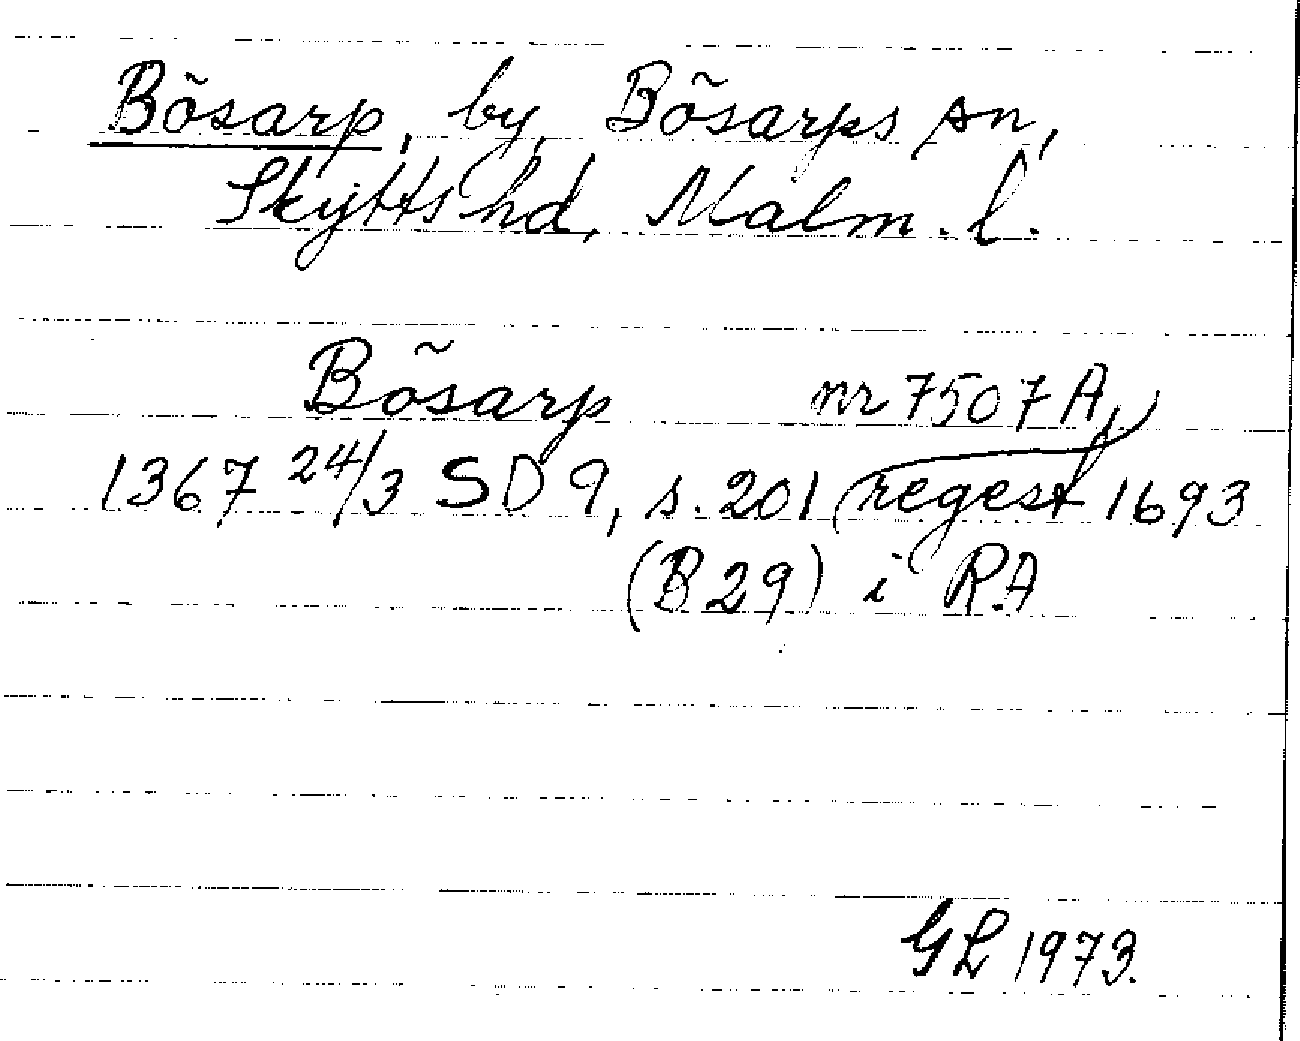 Bösarp, by, Bösarps sn,
Skytts hd, Malm. l.
Bösarp nr 7507 A,
1367 24/3 SD 9, s. 201 regest 1693
(B 29) i RA
GL 1973.